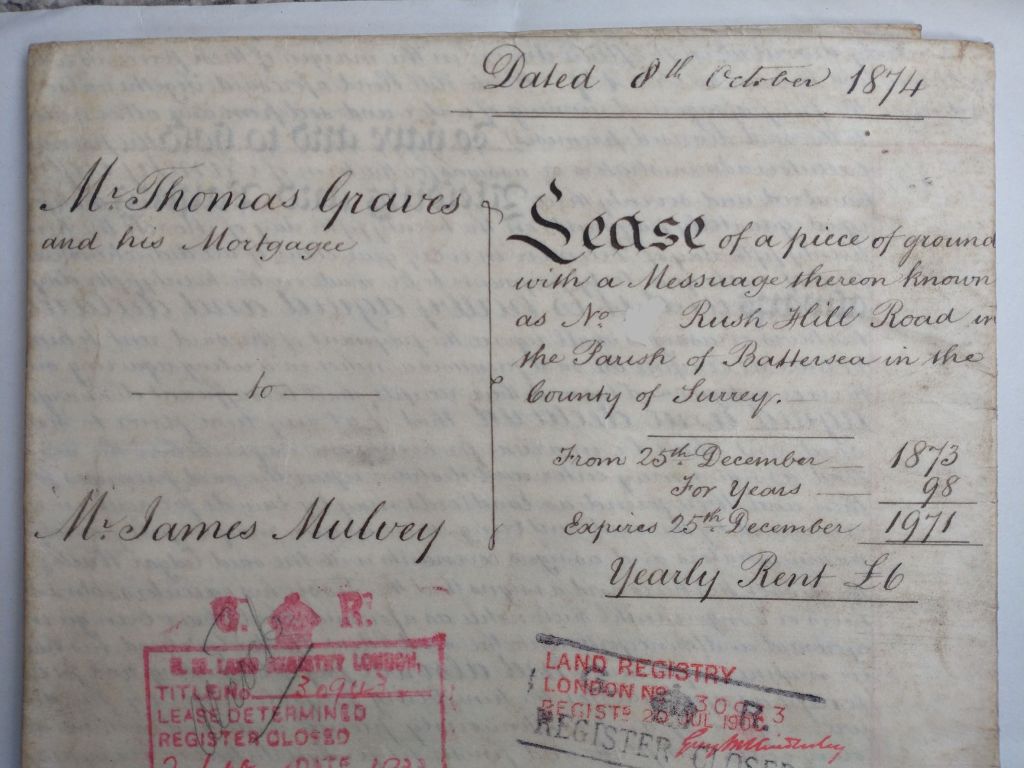 Dated 8th October 1874
Mr. Thomas Graves
and his Mortgagee
to
Mr. James Mulvey
Lease of a piece of ground
with a Messuage thereon known
as No Rush Hill Road in
the Parish of Battersea in the
County of Surrey.
From 25th December 1873
For Years 98
Expires 25th December 1971
Yearly Rent £6
G. R.
H. M. LAND REGISTRY LONDON.
TITLE No
LEASE DETERMINED
REGISTER CLOSED
DATE
LAND REGISTRY
LONDON No
REGISTD 20 JUL
R.
REGISTER CLOSED